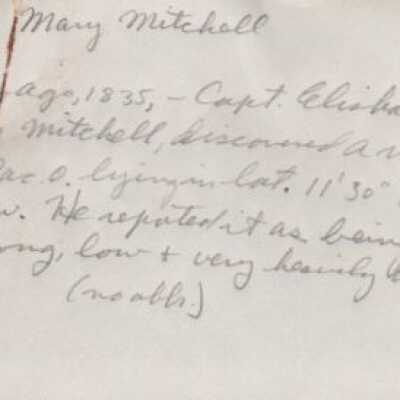 Mary Mitchell
ago, 1835, - Capt. Elisha
Mitchell, discovered a
Pac. O. lying in lat. 11' 30"
w. He reported it as bein
ong, low + very heavily
(no abbr.)